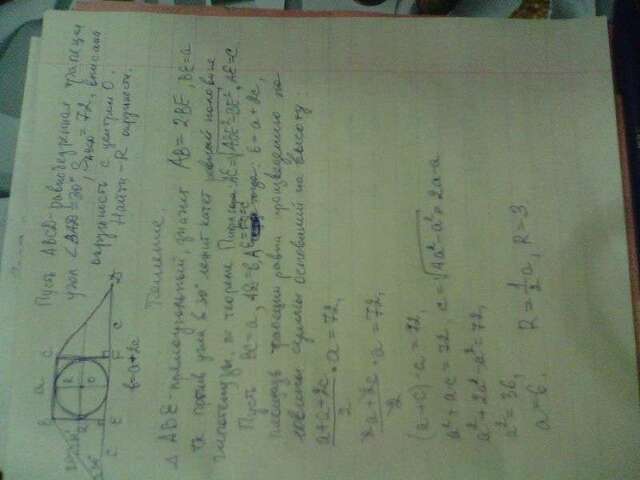 Пусть ABCD - равнобедренная трапеция
угол ∠BAD=30°, S =72, вписана
окружность с центром O.
Найти - R окружности.
Решение
Δ ABE - прямоугольный, значит AB = 2BE, BE=a
та против угла в 30° лежит катет равный половине
гипотенузы, по теореме Пифагора. AE=√AB²-BE², AE=c
Пусть BC=a, AD=b, тогда: b=a+2c,
площадь трапеции равна произведению по-
ловины суммы оснований на высоту.
a+a+2c/2 · a=72,
2a+2c/2 · a=72,
(a+c)·a=72,
a²+ac=72, c=√4a²-a²=2a-a
a²+2a²-a²=72,
a²=36,
a=6.
R=1/2 a, R=3
B
a
C
R
O
D
c
E
F
c
b=a+2c